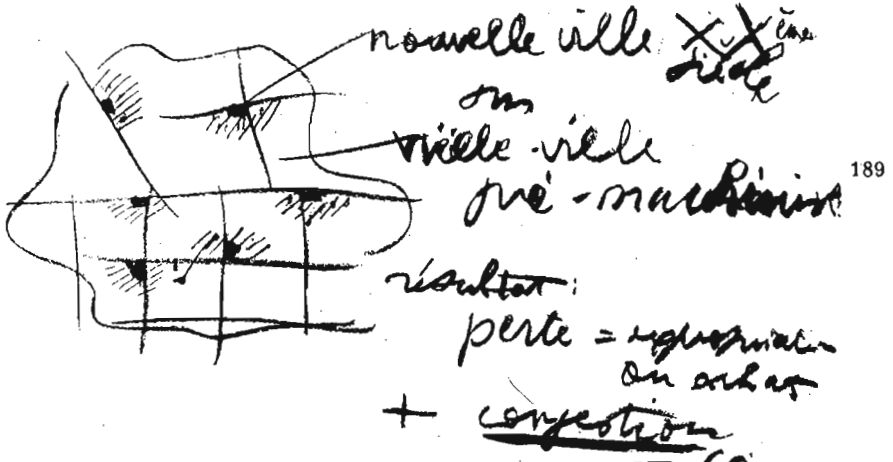 nouvelle ville XX ème
siècle
sur
vieille-ville
pré-machiniste
189
résultat:
perte = expropriation
ou achat
+ congestion